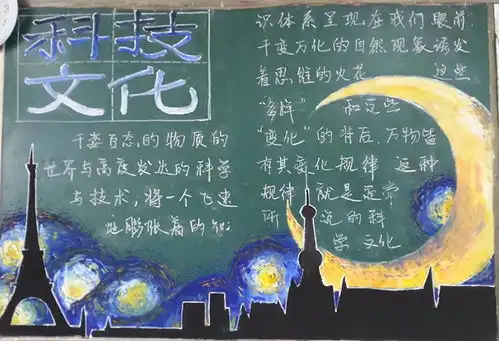 科技
文化
千姿百态的物质的
世界与高度发达的科学
与技术，将一个飞速
膨胀着的知
识体系呈现在我们眼前
千变万化的自然现象诱发
着思维的火花 这些
"多样" 和这些
"变化"的背后，万物皆
有其变化规律 这种
规律 就是平常
所 说的科
学 文化